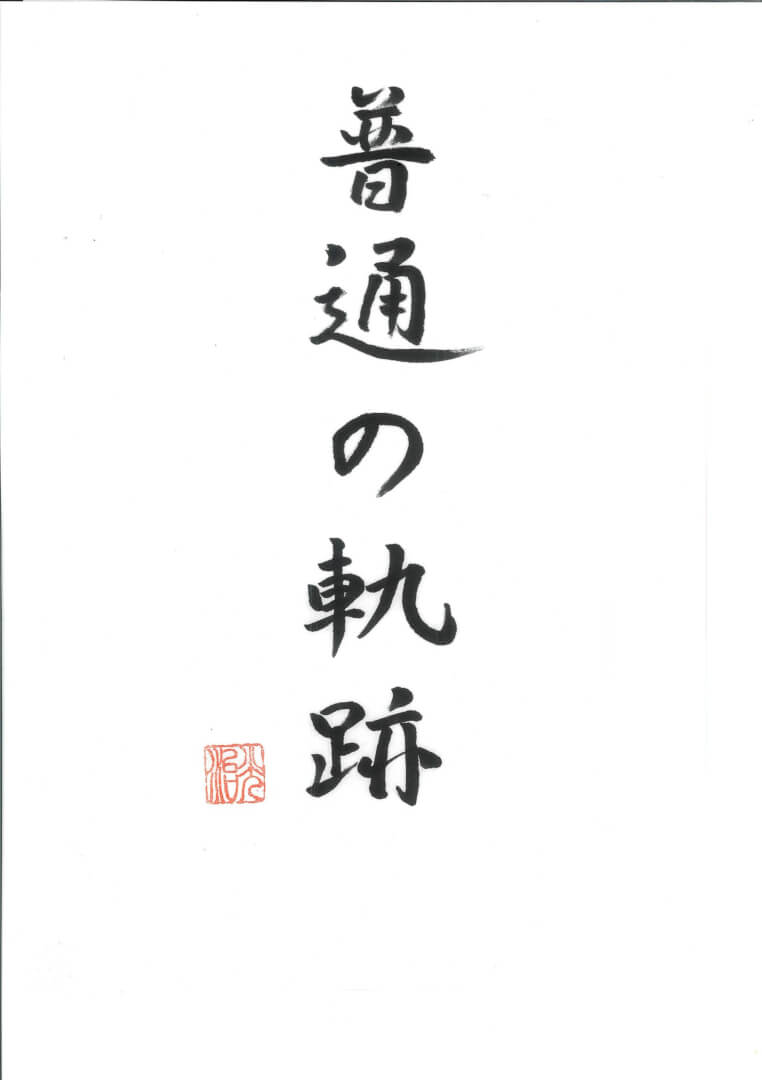 普通の軌跡